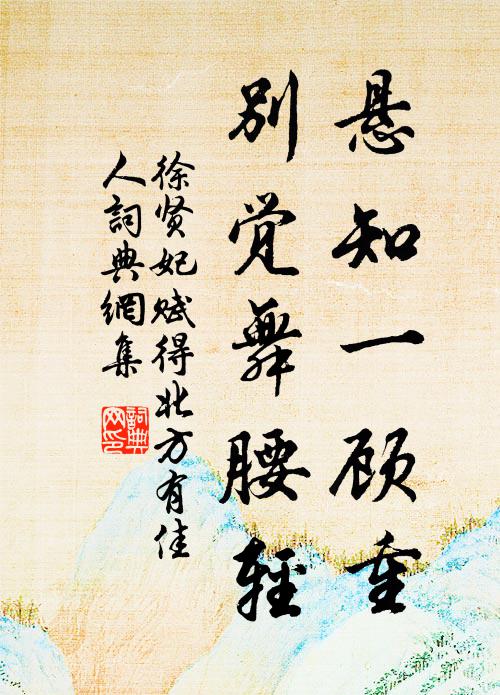 悬知一顾重
别觉舞腰轻
徐贤妃赋得北方有佳
人詞典網集
詞典
网印